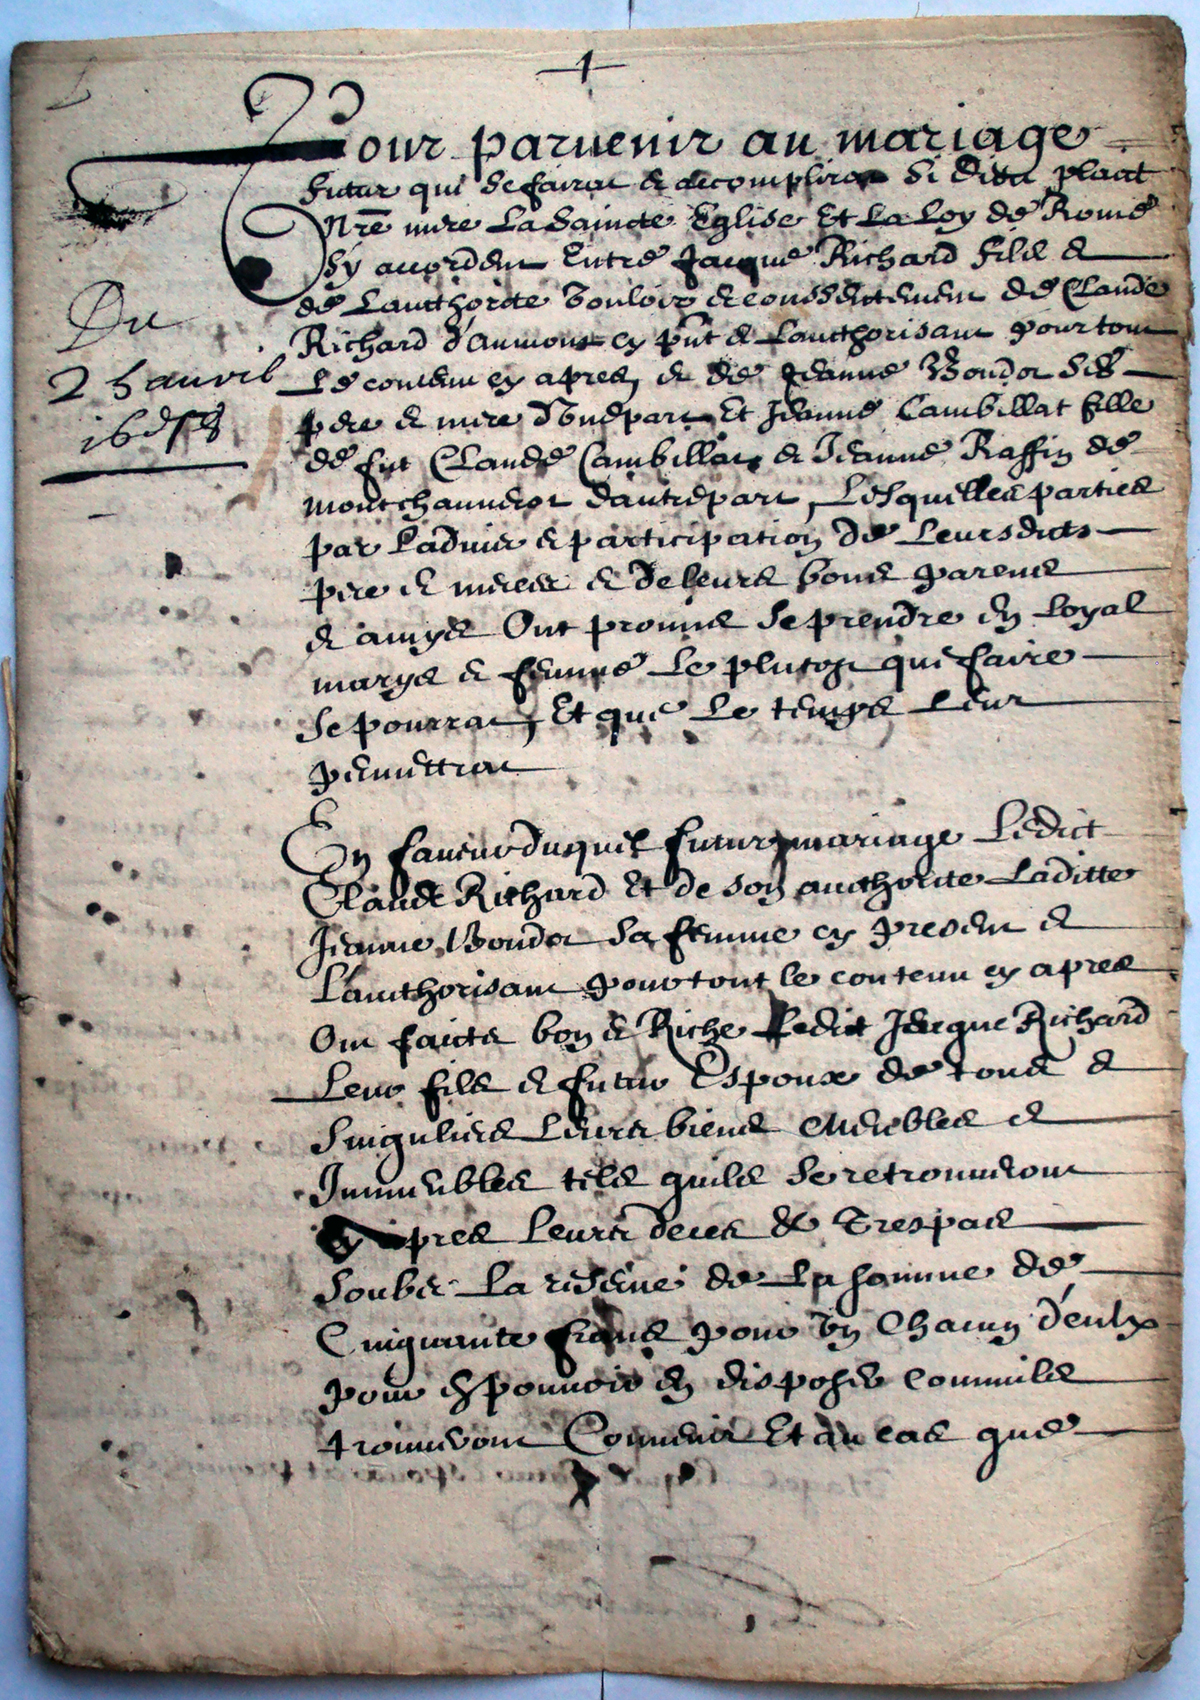 Pour paruenir au mariage
futur qui se faira & accomplira si dieu plaict
Nre mere La Saincte Eglise Et La Loy de Rome
sy accordent Entre Jacque Richard filz &
de Lautthorite vouloir & consentement de Claude
Richard d'aumont cy pnt & Lautthorisant pour tout
Le contenu cy apres, & de Jeanne Boudot ses
Du
23 auril
pere & mere d'Unepart Et Jeanne Cambillat fille
de fut Claude Cambillat & Jeanne Raffin de
montchauuerot dautrepart, Lesquelles parties
par Laduis & participation de Leursdicts
pere & meres & de leurs bons parens
& amys Ont promis se prendre en Loyal
marys & femme Le plutost que faire
se pourrat, Et que Le temps Leur
permettrat
En faueur duquel futur mariage Ledict
Claude Richard Et de son autthorite Laditte
Jeanne Boudot sa femme cy present &
L'autthorisant pour tout le contenu cy apres
Ont faicts bon & Riche Ledict Jacque Richard
Leur filz & futur Espoux de tous &
singuliers Leurs biens Meubles &
Immeubles telz quilz se retrouueront
apres Leurs deces & Trespas
soubs La reserue de La somme de
Cinquante frans pour vn Chacun d'eulx
pour en pouuoir en disposer comme ilz
trouueront Conuenir Et au cas que